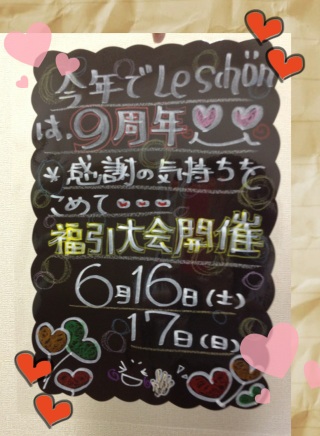 今年でLe Schön
は、9周年
*感謝の気持ちを
こめて
福引大会開催
6月16日(土)
17日(日)